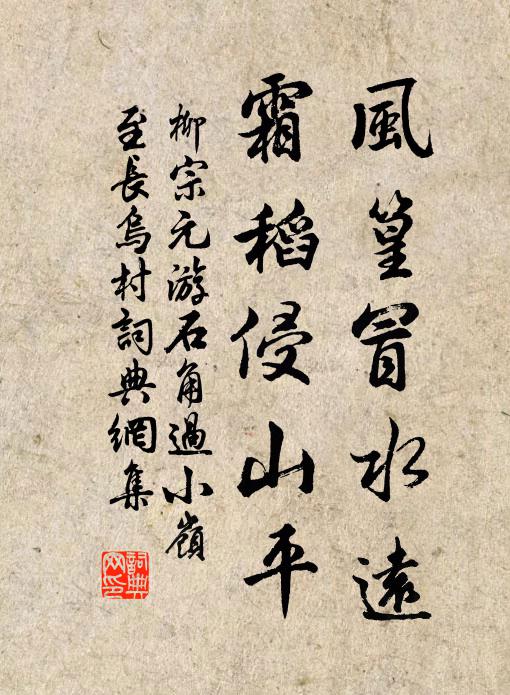 風篁冒水遠
霜稻侵山平
柳宗元游石角過小嶺
至長烏村詞典網集
詞典网印